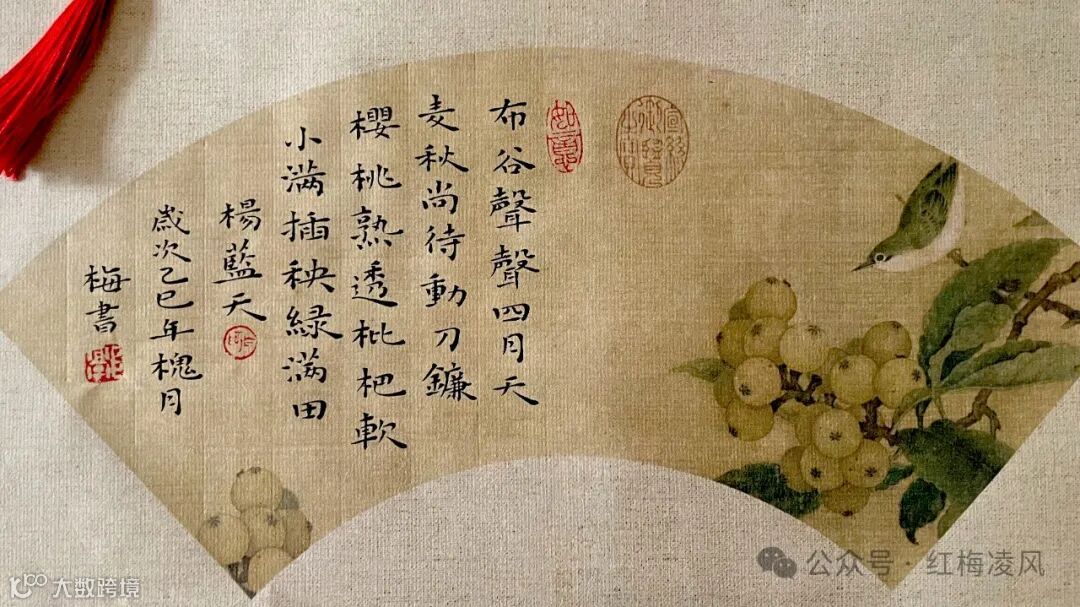 如意
布谷聲聲四月天
麦秋尚待動刀鐮
櫻桃熟透枇杷軟
小满插秧緑满田
楊藍天
歲次乙巳年槐月
梅書
公众号·红梅凌风
大数跨境